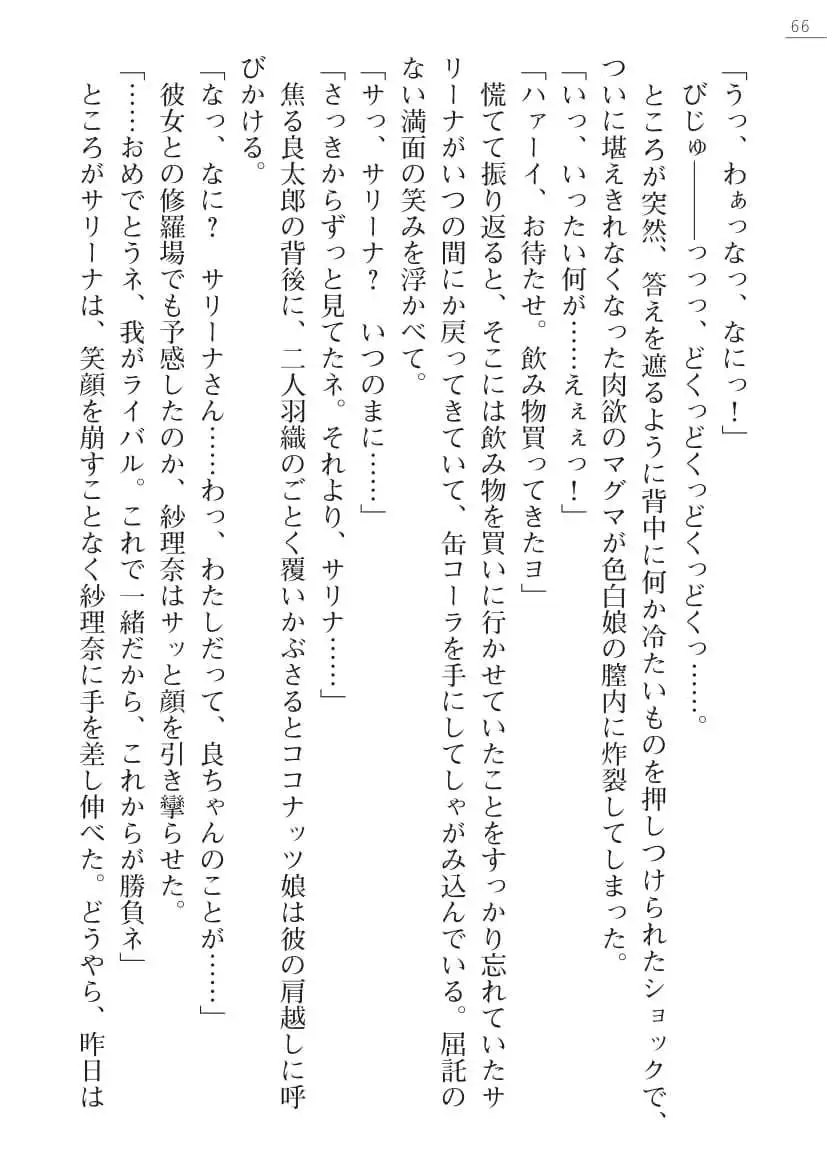 66
「うっ、わぁっなっ、なにっ！」
びじゅ――っっっ、どくっどくっどくっどくっ……。
ところが突然、答えを遮るように背中に何か冷たいものを押しつけられたショックで、
ついに堪えきれなくなった肉欲のマグマが色白娘の膣内に炸裂してしまった。
「いっ、いったい何が……えぇぇっ！」
「ハァーイ、お待たせ。飲み物買ってきたヨ」
慌てて振り返ると、そこには飲み物を買いに行かせていたことをすっかり忘れていたサ
リーナがいつの間にか戻ってきていて、缶コーラを手にしてしゃがみ込んでいる。屈託の
ない満面の笑みを浮かべて。
「サっ、サリーナ？　いつのまに……」
「さっきからずっと見てたネ。それより、サリナ……」
焦る良太郎の背後に、二人羽織のごとく覆いかぶさるとココナッツ娘は彼の肩越しに呼
びかける。
「なっ、なに？　サリーナさん……わっ、わたしだって、良ちゃんのことが……」
彼女との修羅場でも予感したのか、紗理奈はサッと顔を引き攣らせた。
「……おめでとうネ、我がライバル。これで一緒だから、これからが勝負ネ」
ところがサリーナは、笑顔を崩すことなく紗理奈に手を差し伸べた。どうやら、昨日は